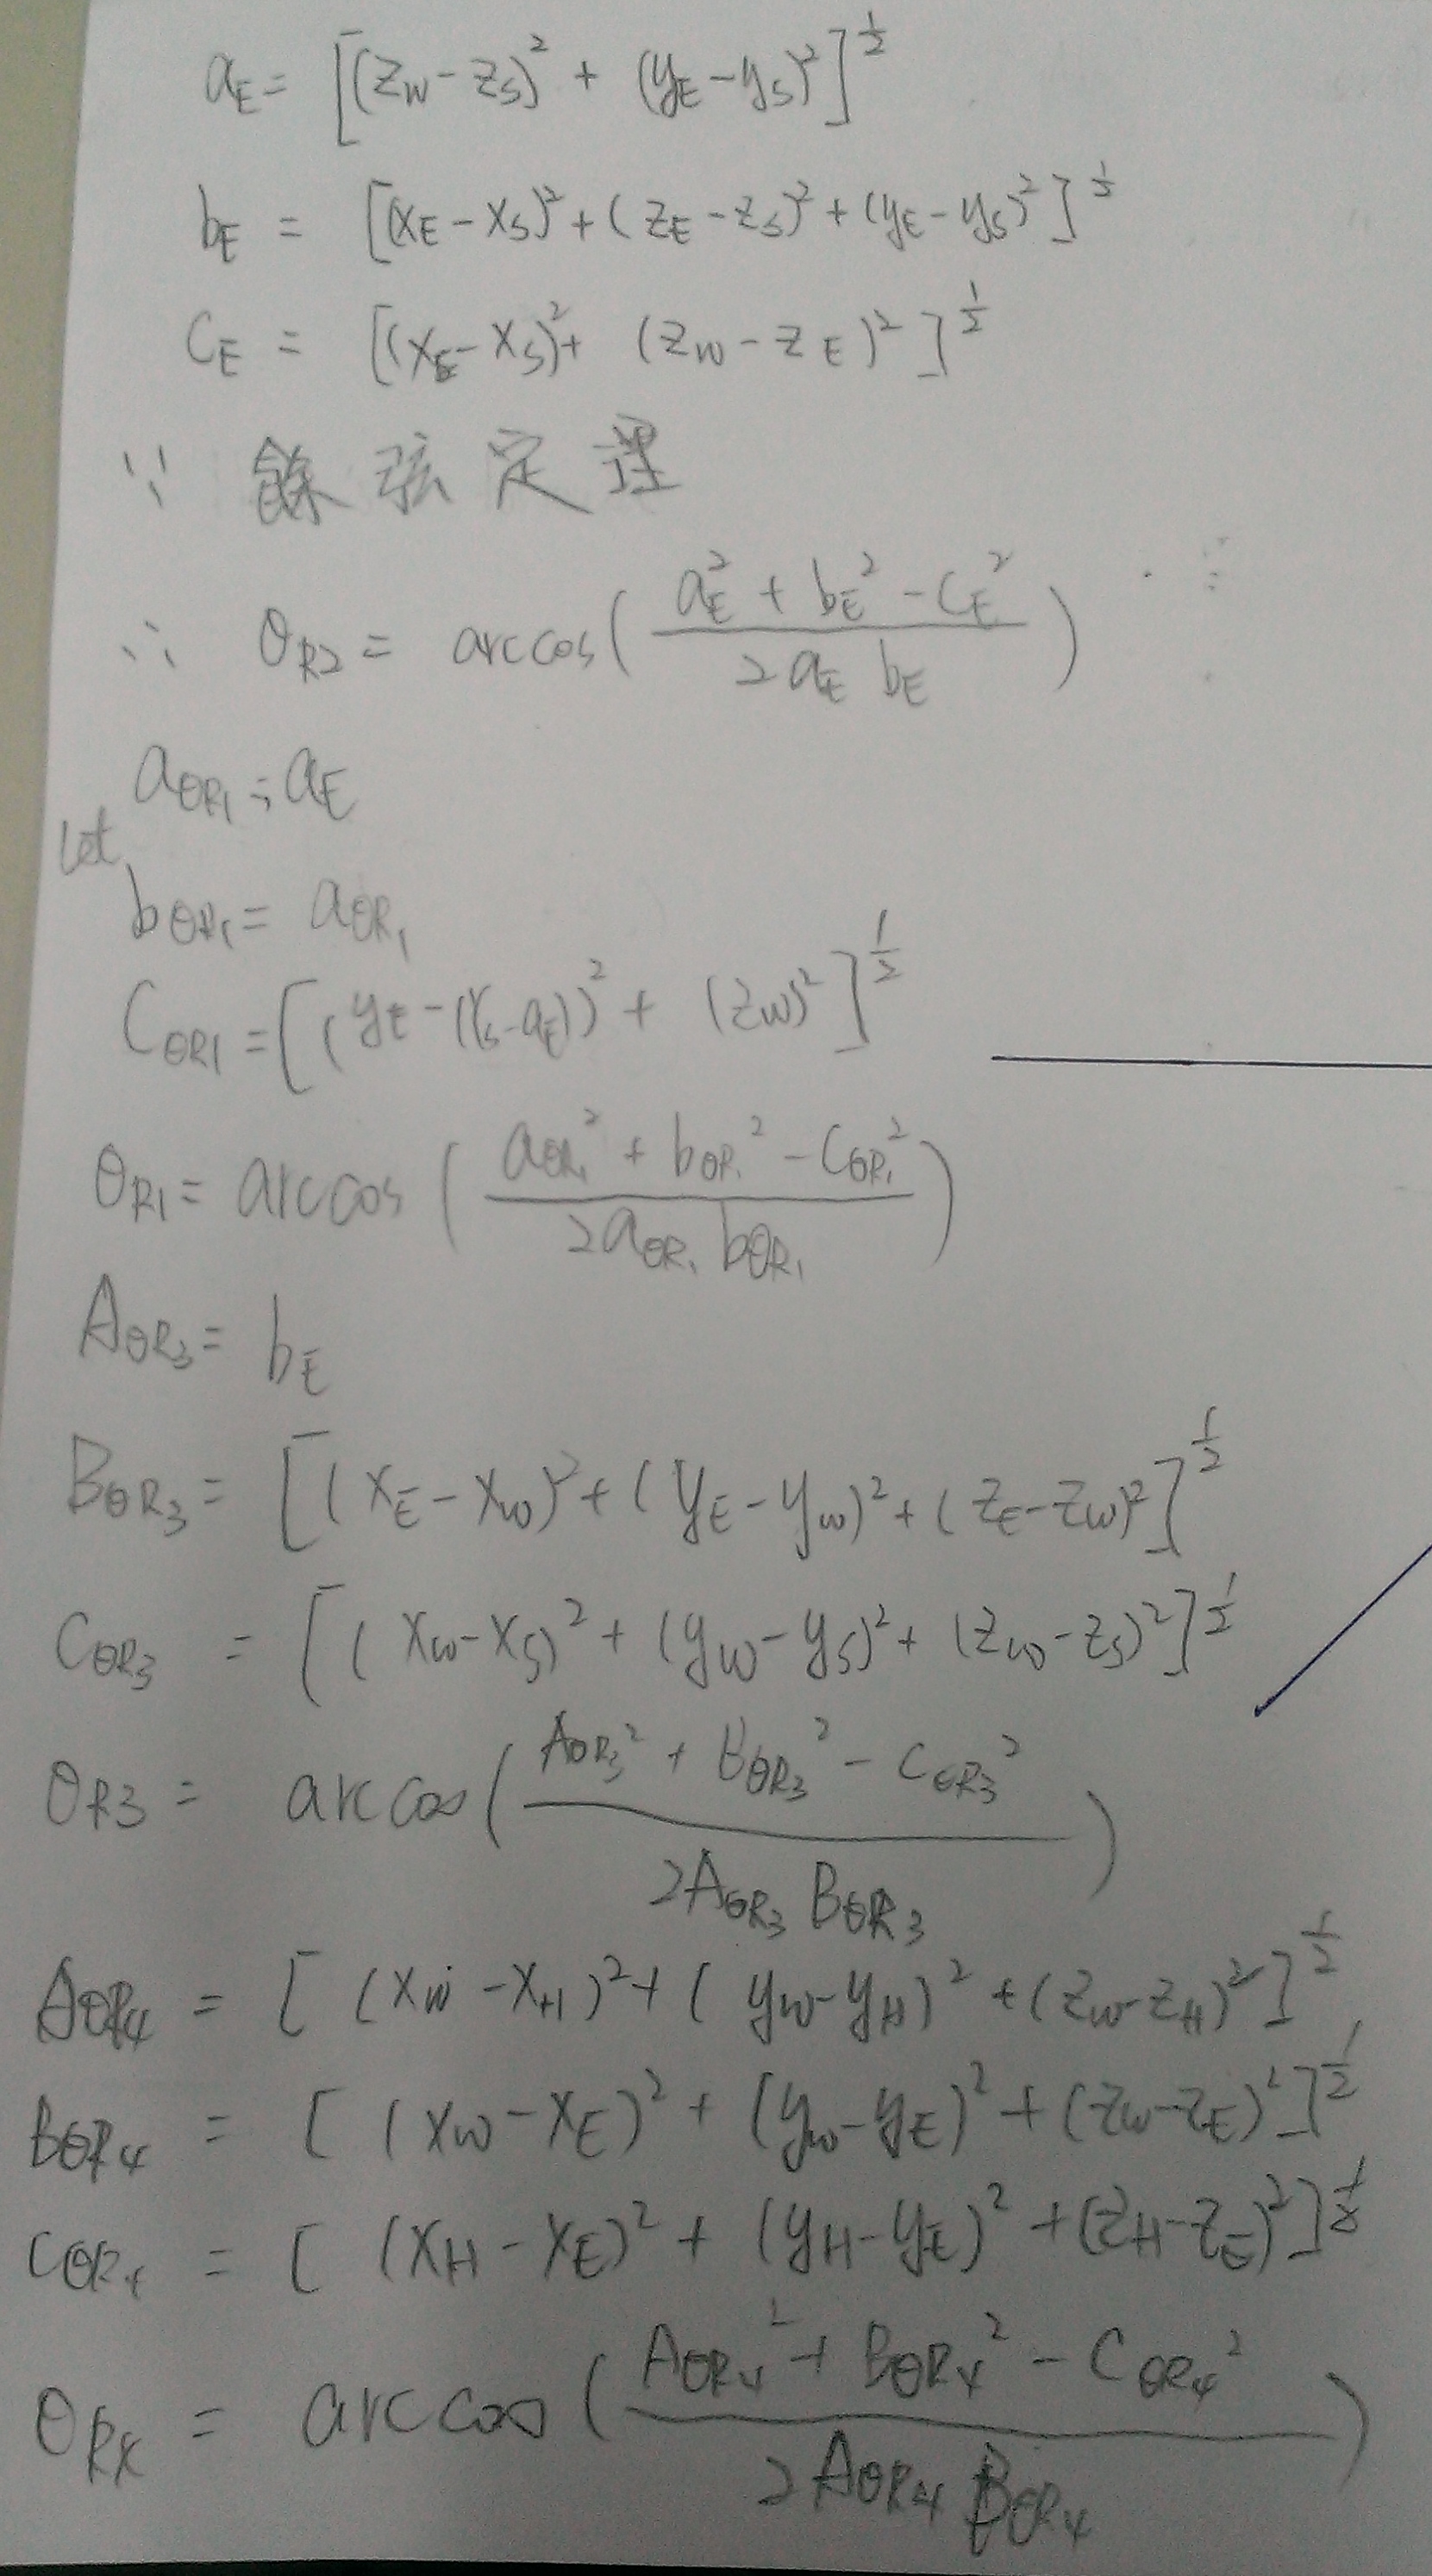 a_E = [(z_W - z_S)^2 + (y_E - y_S)^2]^{1/2}
b_E = [(x_E - x_S)^2 + (z_E - z_S)^2 + (y_E - y_S)^2]^{1/2}
c_E = [(x_E - x_S)^2 + (z_W - z_E)^2]^{1/2}
∵ 餘弦定理
∴ θ_{R2} = arccos((a_E^2 + b_E^2 - c_E^2) / (2 a_E b_E))
a_{θR1} = a_E
let
b_{θR1} = a_{θR1}
C_{θR1} = [(y_E - (Y_S - a_E))^2 + (z_W)^2]^{1/2}
θ_{R1} = arccos((a_{θR1}^2 + b_{θR1}^2 - C_{θR1}^2) / (2 a_{θR1} b_{θR1}))
A_{θR3} = b_E
B_{θR3} = [(x_E - x_W)^2 + (y_E - y_W)^2 + (z_E - z_W)^2]^{1/2}
C_{θR3} = [(x_W - x_S)^2 + (y_W - y_S)^2 + (z_W - z_S)^2]^{1/2}
θ_{R3} = arccos((A_{θR3}^2 + B_{θR3}^2 - C_{θR3}^2) / (2 A_{θR3} B_{θR3}))
A_{θR4} = [(x_W - x_H)^2 + (y_W - y_H)^2 + (z_W - z_H)^2]^{1/2}
B_{θR4} = [(x_W - x_E)^2 + (y_W - y_E)^2 + (z_W - z_E)^2]^{1/2}
C_{θR4} = [(x_H - x_E)^2 + (y_H - y_E)^2 + (z_H - z_E)^2]^{1/2}
θ_{R4} = arccos((A_{θR4}^2 + B_{θR4}^2 - C_{θR4}^2) / (2 A_{θR4} B_{θR4}))